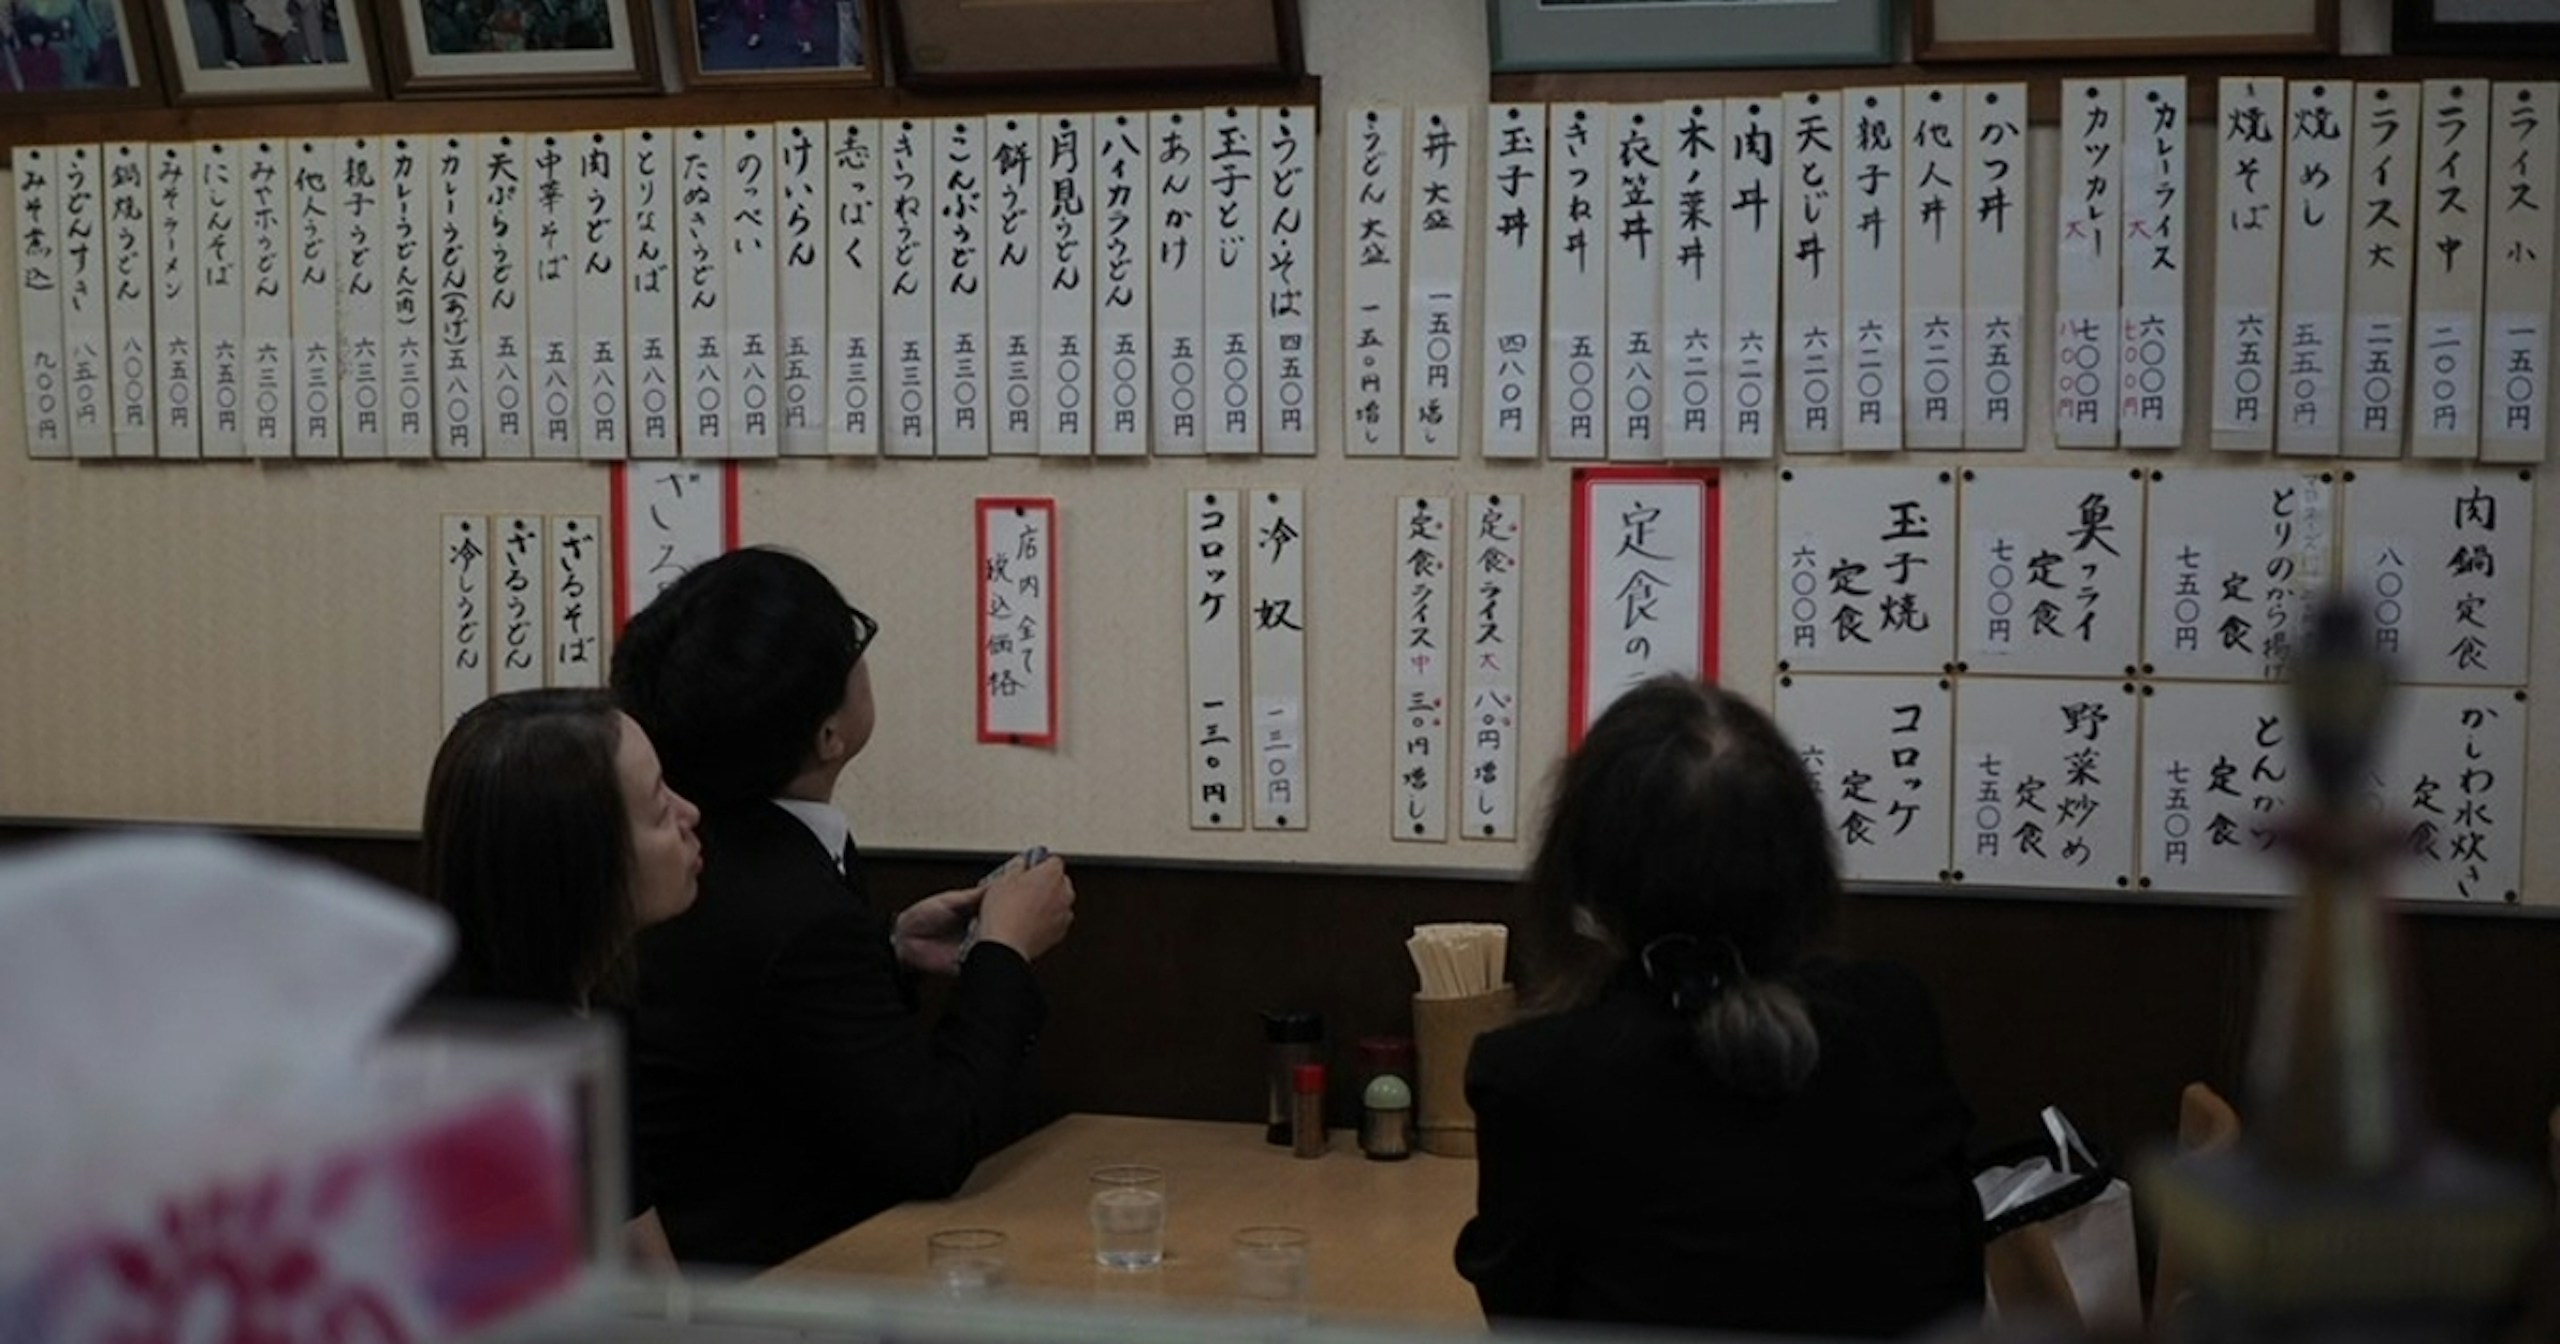 ライス 小 一五〇円
ライス 中 二〇〇円
ライス 大 二五〇円
焼めし 五五〇円
焼そば 六五〇円
カレーライス 六〇〇円
大 七〇〇円
カツカレー 七〇〇円
大 八〇〇円
かつ丼 六五〇円
他人丼 六二〇円
親子丼 六二〇円
天とじ丼 六二〇円
肉丼 六二〇円
木ノ葉丼 六二〇円
衣笠丼 五八〇円
きつね丼 五〇〇円
玉子丼 四八〇円
丼大盛 一五〇円増し
うどん大盛 一五〇円増し
うどん・そば 四五〇円
玉子とじ 五〇〇円
あんかけ 五〇〇円
ハイカラうどん 五〇〇円
月見うどん 五〇〇円
餅うどん 五三〇円
こんぶうどん 五三〇円
きつねうどん 五三〇円
志っぽく 五三〇円
けいらん 五五〇円
のっぺい 五八〇円
たぬきうどん 五八〇円
とりなんば 五八〇円
肉うどん 五八〇円
中華そば 五八〇円
天ぷらうどん 五八〇円
カレーうどん(あげ) 五八〇円
カレーうどん(肉) 六三〇円
親子うどん 六三〇円
他人うどん 六三〇円
みや木うどん 六三〇円
にしんそば 六五〇円
みそラーメン 六五〇円
鍋焼うどん 八〇〇円
うどんすき 八五〇円
みそ煮込 九〇〇円
肉鍋定食 八〇〇円
とりのから揚げ 定食 七五〇円
魚フライ 定食 七〇〇円
玉子焼 定食 六〇〇円
かしわ水炊き 定食
とんかつ 定食 七五〇円
野菜炒め 定食 七五〇円
コロッケ 定食
定食の
定食ライス大 八〇円増し
定食ライス中 三〇円増し
冷奴 一三〇円
コロッケ 一三〇円
店内全て
税込価格
ざる
ざるそば
ざるうどん
冷しうどん